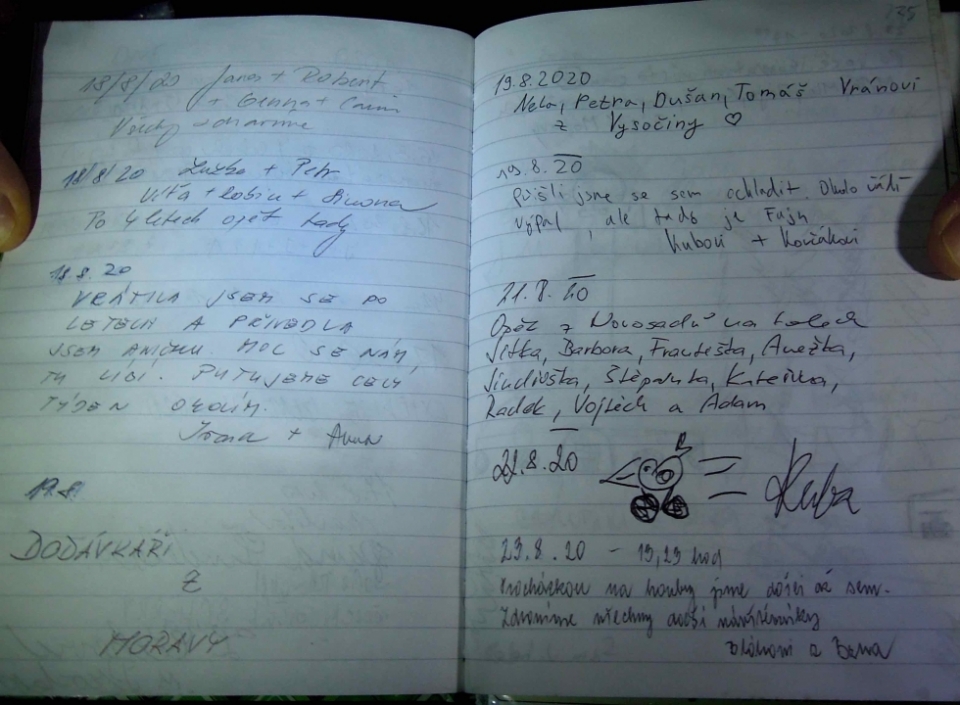 18/8/20 Janos + Robert
+ Genna +
Všechny zdravíme
18/8/20 + Petr
Víťa + Robin + Simona
Po 4 letech opět tady
18.8.20
VRÁTILA JSEM SE PO
LETECH A PŘIVEDLA
JSEM ANIČKU. MOC SE NÁM
TU LÍBÍ. PUTUJEME CELÝ
TÝDEN OKOLÍM.
+ Anna
19.8
DODÁVKAŘI
Z
MORAVY
135
19.8.2020
Nela, Petra, Dušan, Tomáš Vránovi
z Vysočiny ♡
19.8.20
Přišli jsme se sem ochladit. Okolo
výpal, ale tady je Fajn
Kubovi + Kovčákovi
21.8.20
Opět z Novosadů na kolech
Jitka, Barbora, Františka, Anežka,
Jindřiška, Štěpánka, Kateřina,
Radek, Vojtěch a Adam
22.8.20 Kuba
23.8.20 - 15,29 hod
Procházkou na houby jsme došli až sem.
Zdravíme všechny další návštěvníky
z Brna